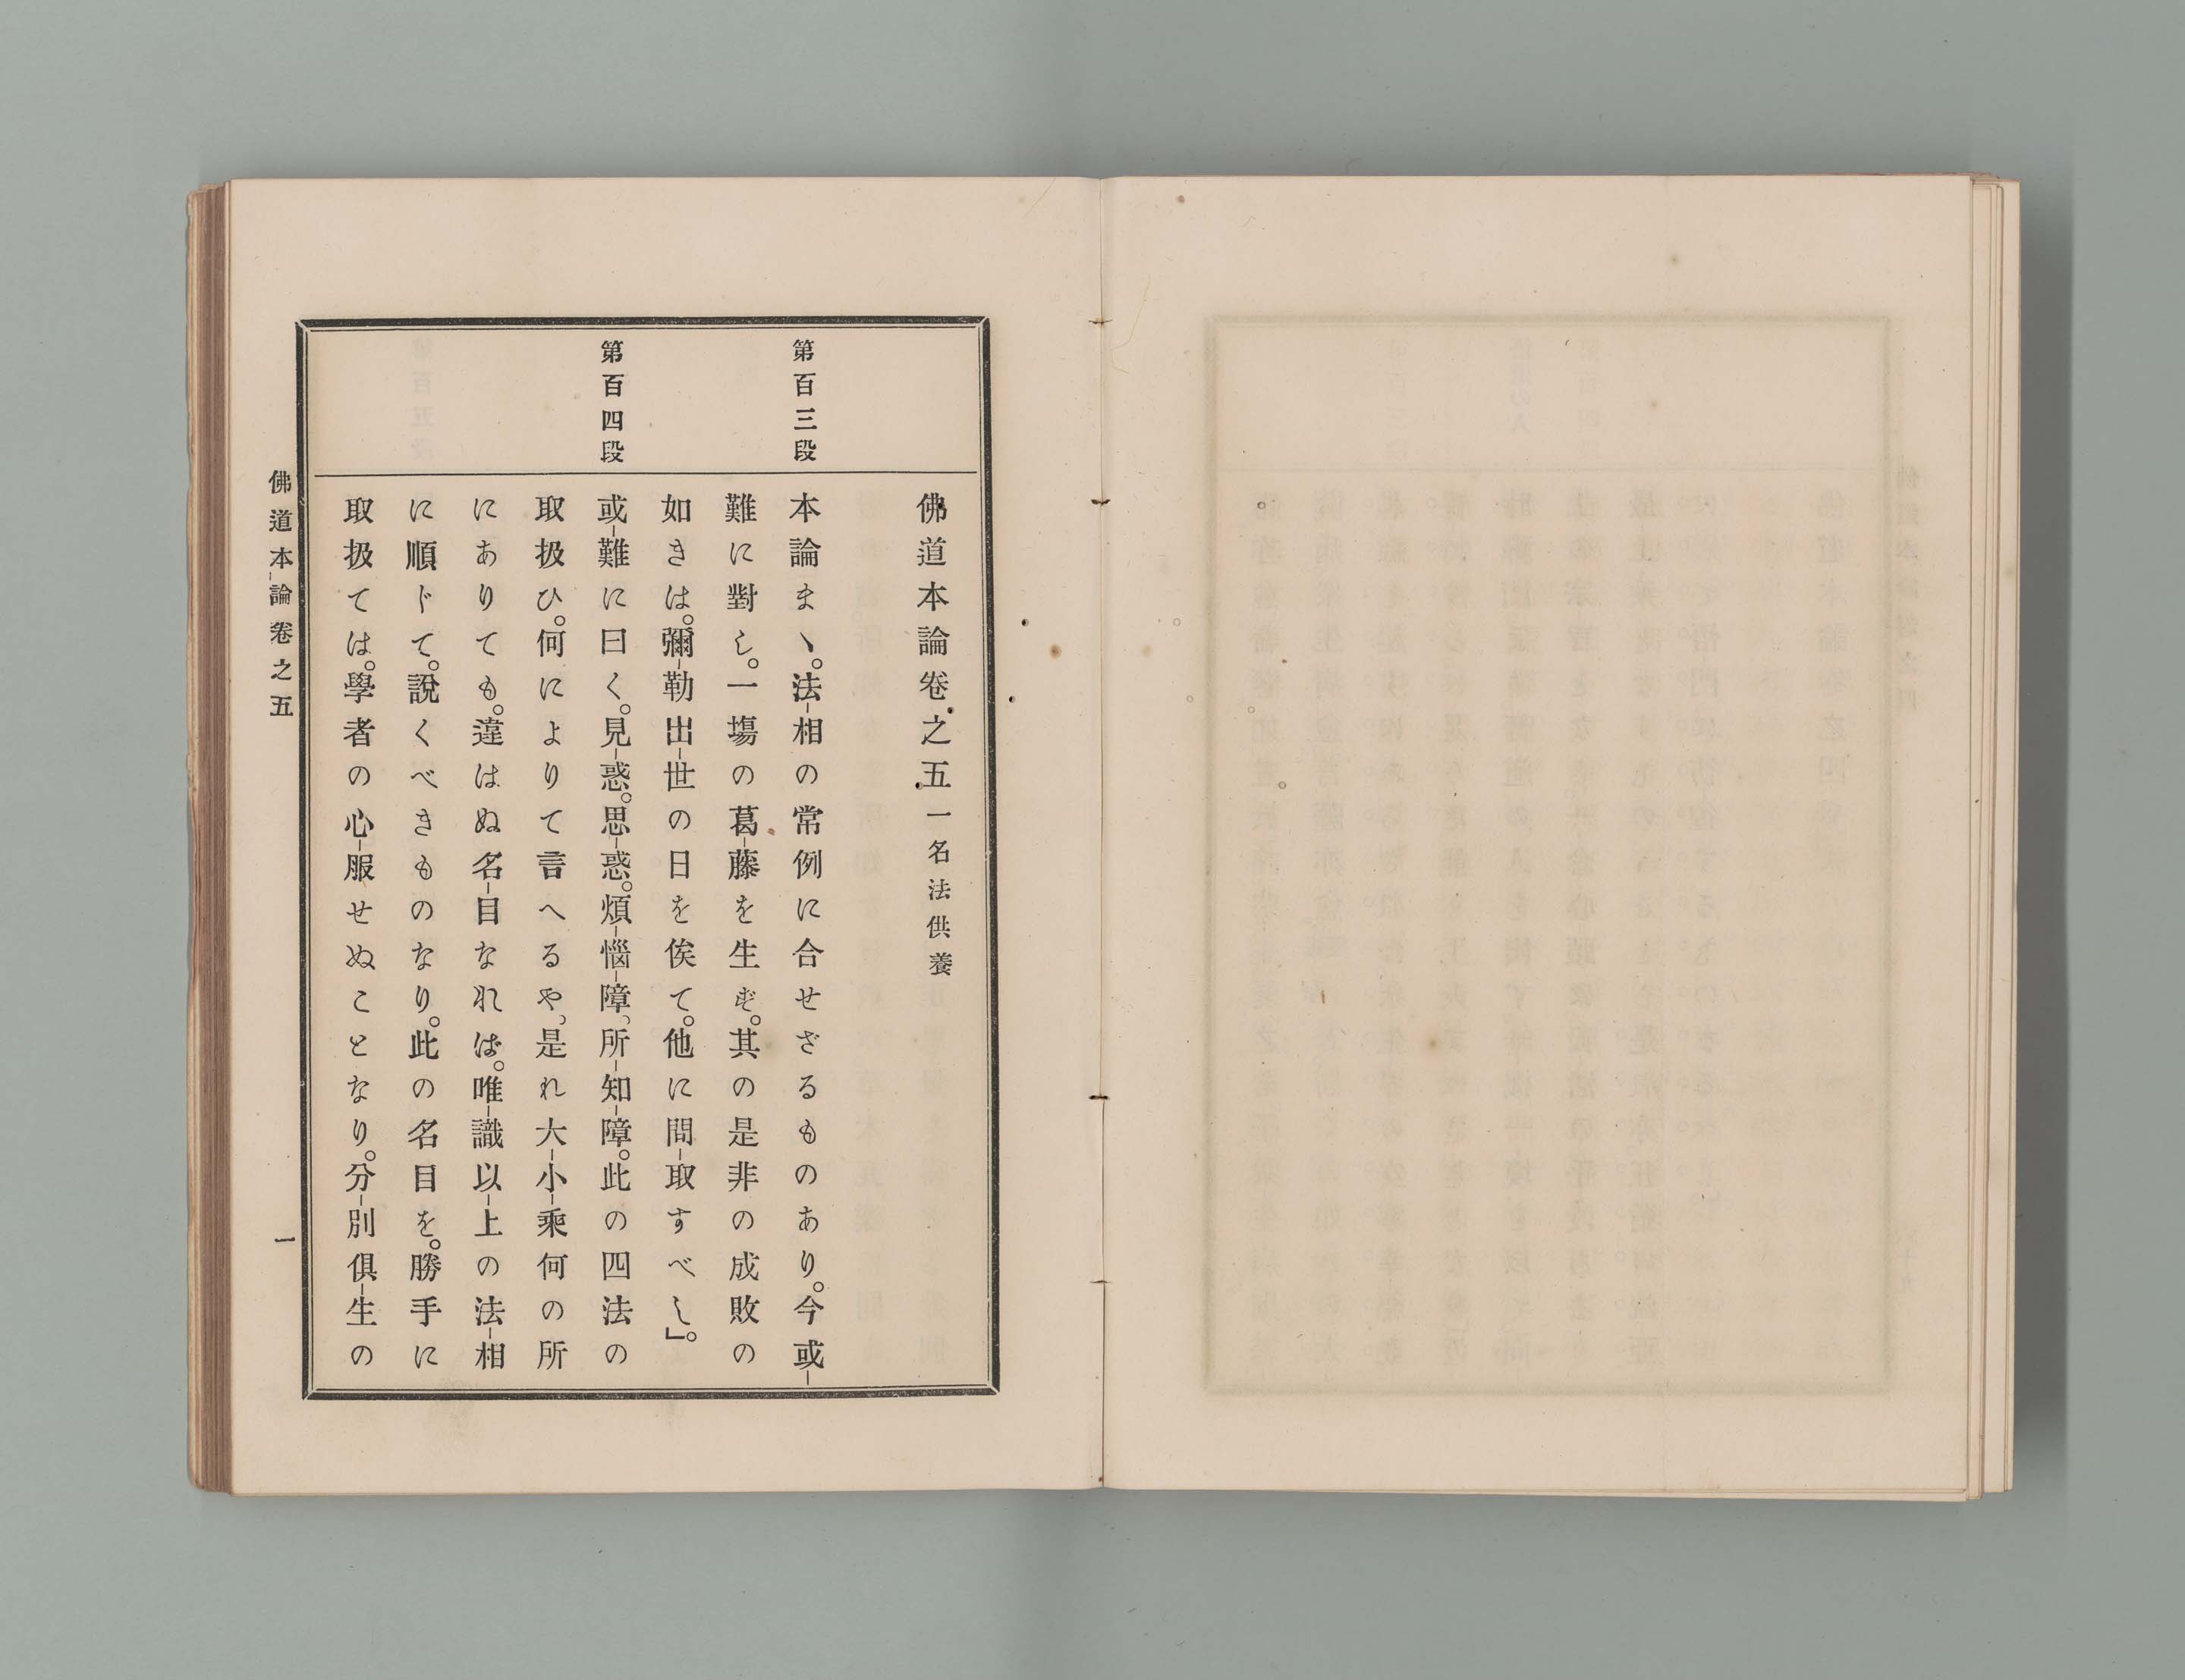 佛道本論卷之五 一名法供養
第百三段
本論まヽ。法-相の常例に合せざるものあり。今或-
難に對し。一塲の葛-藤を生ず。其の是非の成敗の
如きは。彌-勒出-世の日を俟て。他に問-取すべし」。
第百四段
或-難に曰く。見-惑。思-惑。煩-惱-障。所-知-障。此の四法の
取扱ひ。何によりて言へるや。是れ大-小-乘何の所
にありても。違はぬ名-目なれば。唯-識以-上の法-相
に順じて。說くべきものなり。此の名目を。勝手に
取扱ては。學者の心-服せぬことなり。分-別俱-生の
佛道本論卷之五
一